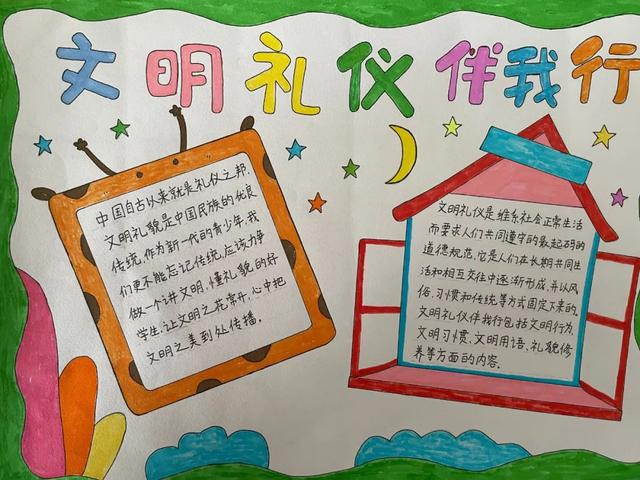 文明礼仪伴我行
中国自古以来就是礼仪之邦,
文明礼貌是中国民族的优良
传统,作为新一代的青少年,我
们更不能忘记传统,应该力争
做一个讲文明,懂礼貌的好
学生,让文明之花常开,心中把
文明之美到处传播。
文明礼仪是维系社会正常生活
而要求人们共同遵守的最起码的
道德规范,它是人们在长期共同生
活和相互交往中逐渐形成,并以风
俗、习惯和传统等方式固定下来的。
文明礼仪伴我行包括文明行为,
文明习惯、文明用语、礼貌修
养等方面的内容。